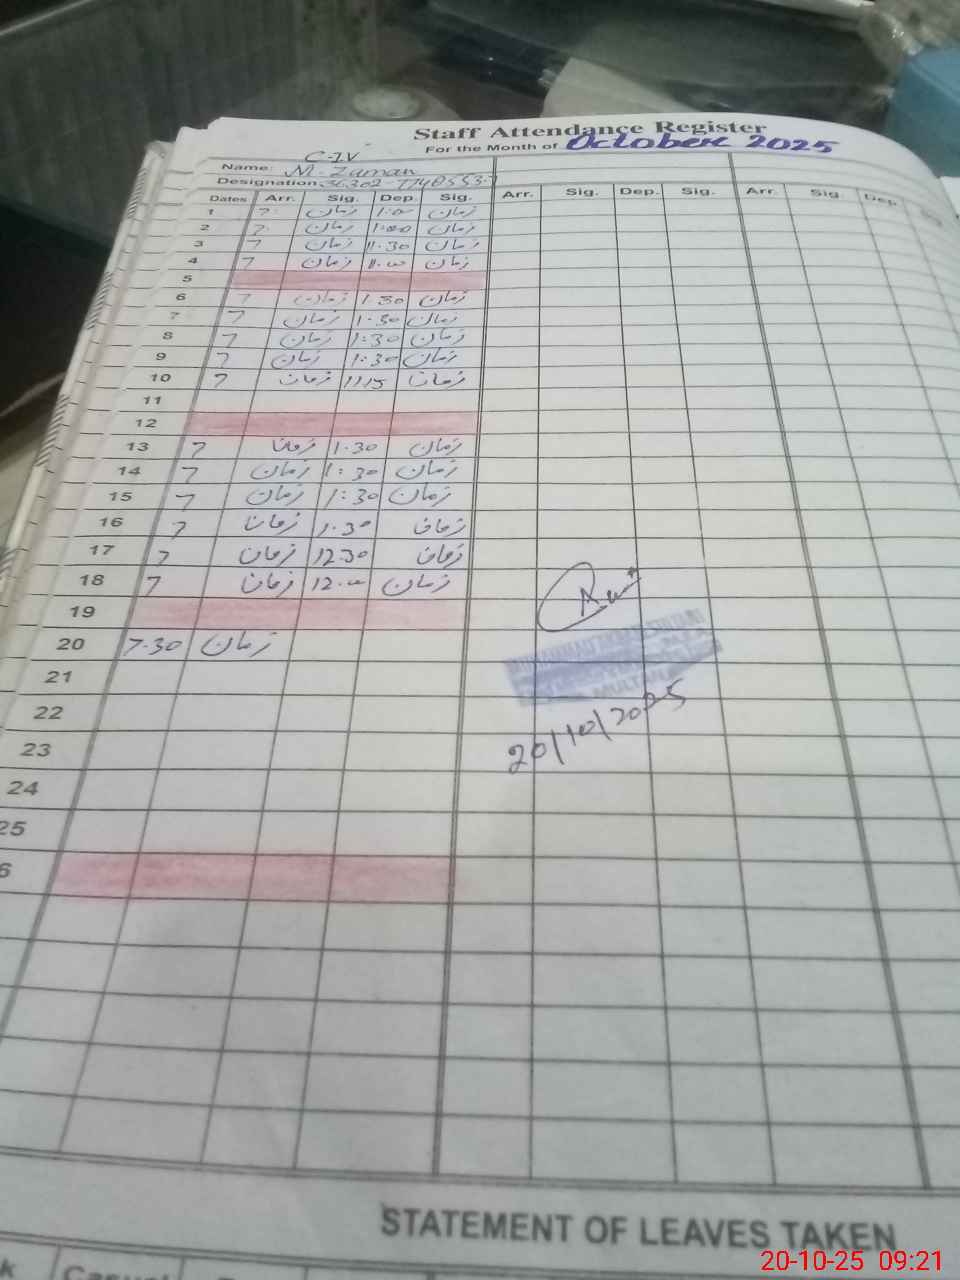 Staff Attendance Register
For the Month of October 2025
C-IV
Name: M. Zaman
Designation: 36302-
Dates Arr. Sig. Dep. Sig. Arr. Sig. Dep. Sig. Arr. Sig. Dep.
1 7 زمان 1:00 زمان
2 7 زمان 1:00 زمان
3 7 زمان 11.30 زمان
4 7 زمان 11.00 زمان
5
6 7 زمان 1.30 زمان
7 7 زمان 1.30 زمان
8 7 زمان 1:30 زمان
9 7 زمان 1:30 زمان
10 7 زمان 1115 زمان
11
12
13 7 زمان 1.30 زمان
14 7 زمان 1:30 زمان
15 7 زمان 1:30 زمان
16 7 زمان 1.30 زمان
17 7 زمان 12.30 زمان
18 7 زمان 12.00 زمان
19
20 7.30 زمان
21
22
23
24
25
6
20/10/2025
STATEMENT OF LEAVES TAKEN
20-10-25 09:21